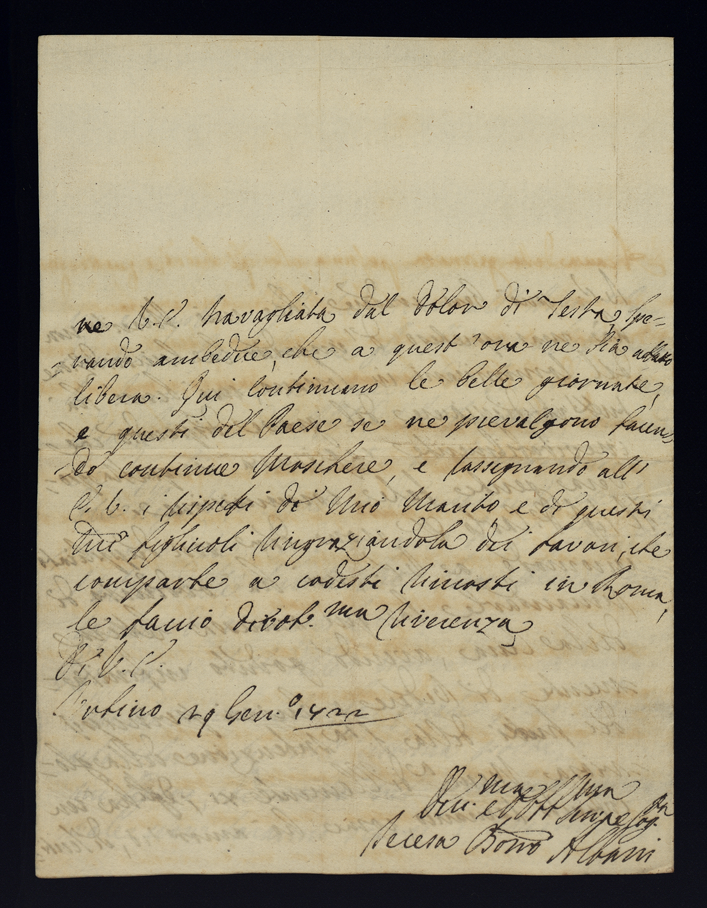 ne V.E. travagliata dal dolor di Testa, spe-
-rando ambedue, che a quest'ora ne sia affatto
libera. Qui continuano le belle giornate,
e questi del Paese se ne prevalgono facen-
-do continue Maschere, e rassegnando all'
E.V. i rispetti di Mio Marito e di questi
miei figliuoli ringraziandola dei favori, che
comparte a codesti rimasti in Roma,
le faccio divot.ma riverenza
Di V.E.
Urbino 29 Gen.o 1722
Teresa Borro Albani